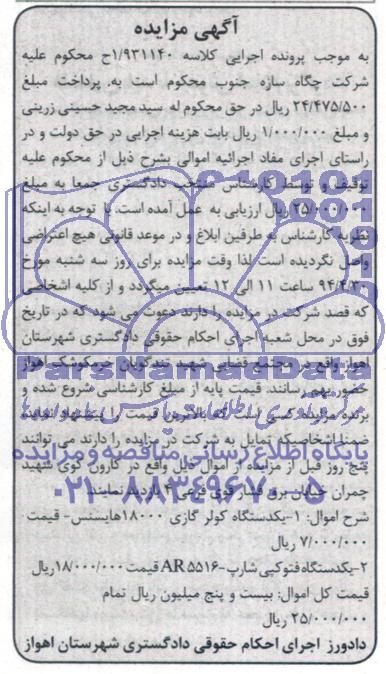 آگهی مزایده
به موجب پرونده اجرایی کلاسه ۱/۹۳۱۱۴۰ح محکوم علیه
شرکت چگاه سازه جنوب محکوم است به، پرداخت مبلغ
۲۴/۴۷۵/۵۰۰ ریال در حق محکوم له سید مجید حسینی زرینی
و مبلغ ۱/۰۰۰/۰۰۰ ریال بابت هزینه اجرایی در حق دولت و در
راستای اجرای مفاد اجرائیه اموالی بشرح ذیل از محکوم علیه
توقیف و توسط کارشناس منتخب دادگستری جمعا به مبلغ
۲۵/۰۰۰/۰۰۰ ریال ارزیابی به عمل آمده است. با توجه به اینکه
نظریه کارشناس به طرفین ابلاغ و در موعد قانونی هیچ اعتراضی
واصل نگردیده است لذا وقت مزایده برای روز سه شنبه مورخ
۹۴/۴/۳۰ ساعت ۱۱ الی ۱۲ تعیین میگردد و از کلیه اشخاصی
که قصد شرکت در مزایده را دارند دعوت می شود که در تاریخ
فوق در محل شعبه اجرای احکام حقوقی دادگستری شهرستان
اهواز واقع در مجتمع قضایی شهید تندگویان اهواز
حضور بهم رسانند. قیمت پایه از مبلغ کارشناسی شروع شده و
برنده مزایده کسی است که بالاترین قیمت را پیشنهاد نماید
ضمنا اشخاصیکه تمایل به شرکت در مزایده را دارند می توانند
پنج روز قبل از مزایده از اموال ذیل واقع در کارون کوی شهید
چمران خیابان نمایند
شرح اموال: ۱-یکدستگاه کولر گازی ۱۸۰۰۰هایسنس- قیمت
۷/۰۰۰/۰۰۰ ریال
۲-یکدستگاه فتوکپی شارپ-AR ۵۵۱۶ قیمت ۱۸/۰۰۰/۰۰۰ریال
قیمت کل اموال: بیست و پنج میلیون ریال تمام
۲۵/۰۰۰/۰۰۰ ریال
دادورز اجرای احکام حقوقی دادگستری شهرستان اهواز
ParsNamadData
پایگاه اطلاع رسانی مناقصه و مزایده
۰۲۱-۸۸۳۴۹۶۷۰-۵